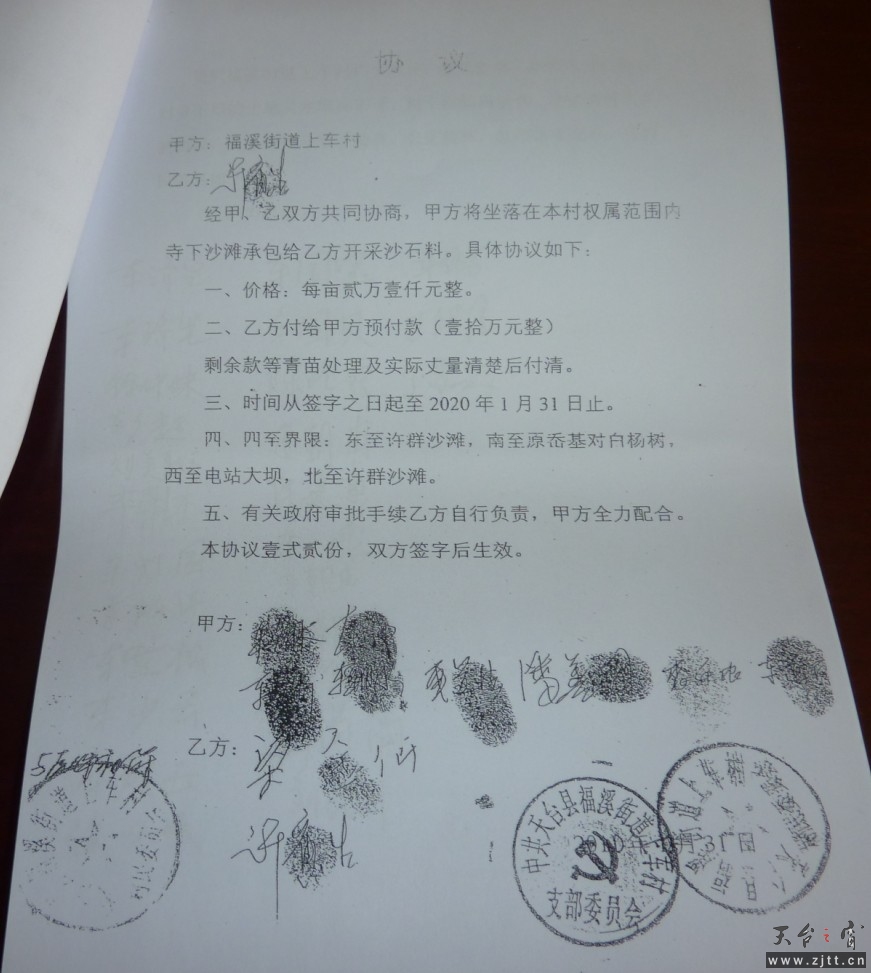 协 议
甲方：福溪街道上车村
乙方：许
经甲、乙双方共同协商，甲方将坐落在本村权属范围内
寺下沙滩承包给乙方开采沙石料。具体协议如下：
一、价格：每亩贰万壹仟元整。
二、乙方付给甲方预付款（壹拾万元整）
剩余款等青苗处理及实际丈量清楚后付清。
三、时间从签字之日起至 2020 年 1 月 31 日止。
四、四至界限：东至许群沙滩，南至原岙基对白杨树，
西至电站大坝，北至许群沙滩。
五、有关政府审批手续乙方自行负责，甲方全力配合。
本协议壹式贰份，双方签字后生效。
甲方：
潘
乙方：
许
街道上车村
中共天台县福溪街道上车村
支部委员会
天台之窗
www.zjtt.cn